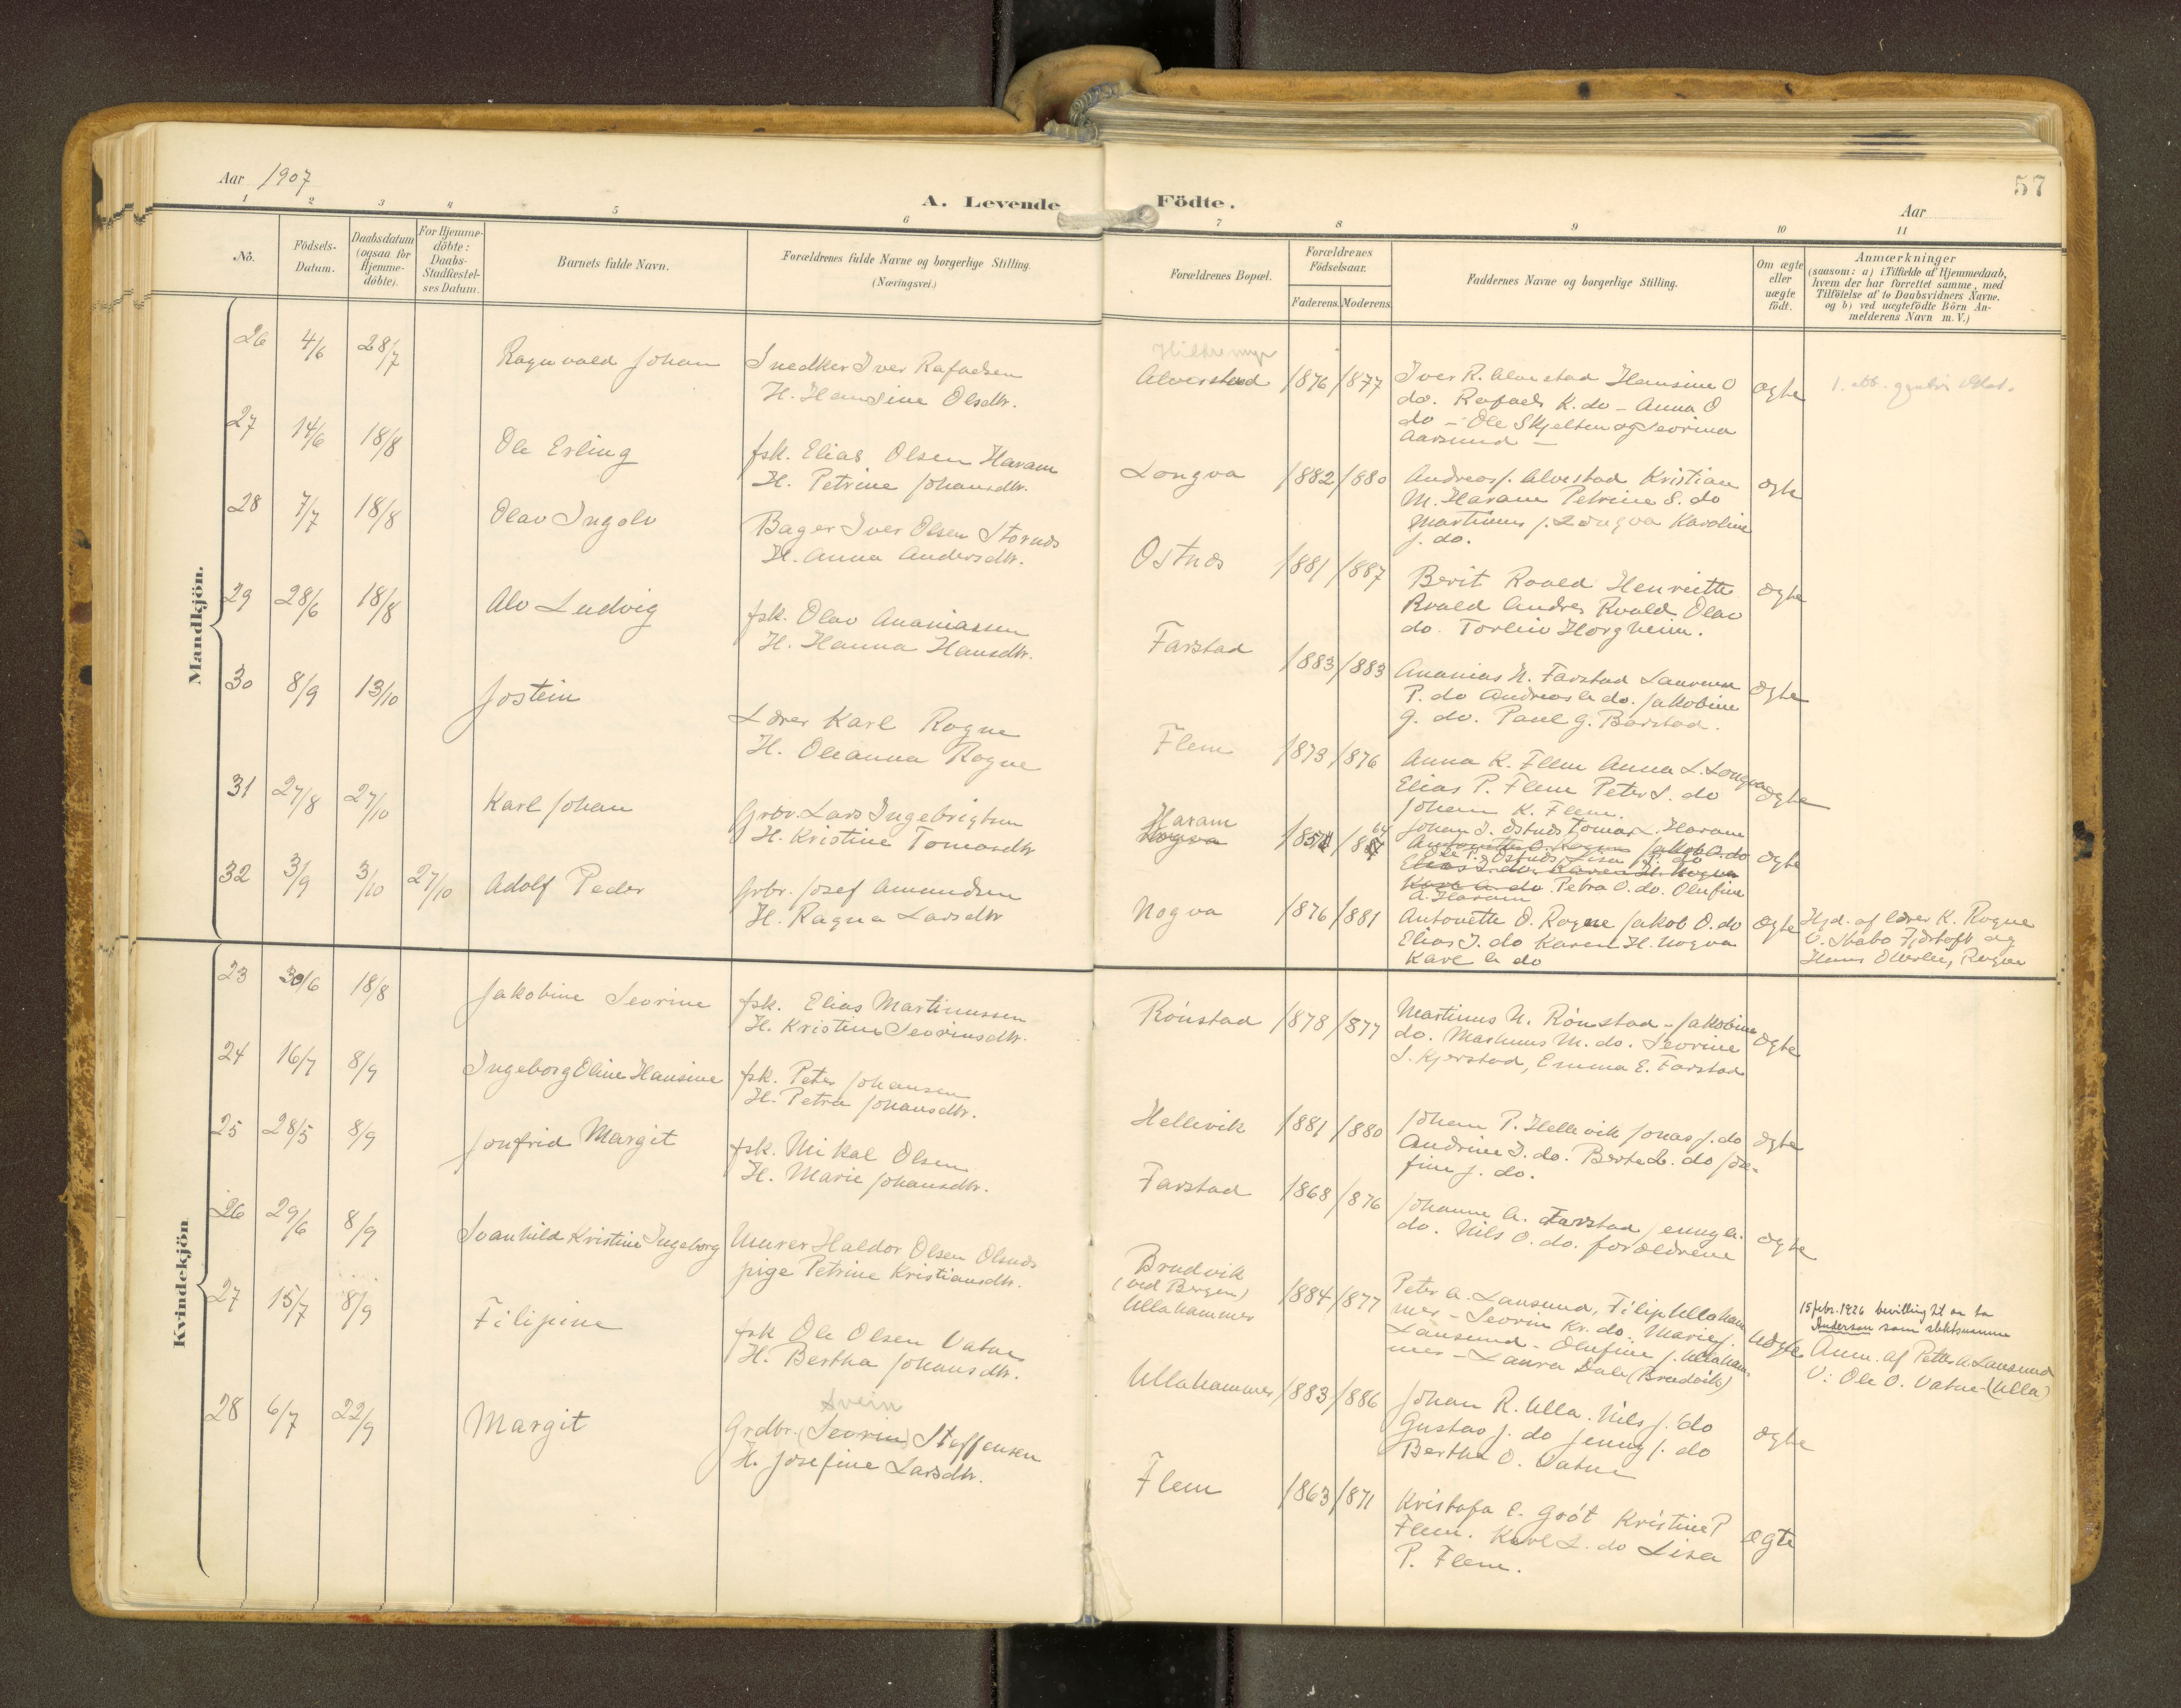 57
Aar 1907
A. Levende Födte.
Aar
1 2 3 4 5 6 7 8 9 10 11
No.
Födsels-Datum.
Daabsdatum (ogsaa for Hjemme-döbte).
For Hjemme-döbte: Daabs-Stadfæstel-ses Datum.
Barnets fulde Navn.
Forældrenes fulde Navne og borgerlige Stilling.
(Næringsvei.)
Forældrenes Bopæl.
Forældrenes Födselsaar.
Faderens. Moderens.
Faddernes Navne og borgerlige Stilling.
Om ægte eller uægte födt.
Anmærkninger
(saasom: a) i Tilfælde af Hjemmedaab,
hvem der har forrettet samme, med
Tilföielse af to Daabsvidners Navne,
og b) ved uægtefödte Börn An-
melderens Navn m. V.)
Mandkjön.
26 4/6 28/7 Ragnvald Johan
Snedker Iver Rafaelsen
H. Hansine Olsdtr.
Hildremyr
Alvestad 1876 1877
Iver R. Alvestad Hansine O
do. Rafael K. do - Anna O
do - Ole Skjelten og Severina
Aarsund -
ægte
27 14/6 18/8 Ole Erling
fsk. Elias Olsen Haram
H. Petrine Johansdtr.
Longva 1882 1880
Andreas J. Alvestad Kristian
M. Haram Petrine S. do
Martinus J. Longva Karoline
J. do.
ægte
28 7/7 18/8 Olav Ingolv
Bager Iver Olsen Stornes
H. Anna Andersdtr.
Østnes 1881 1887
Berit Roald Henriette
Roald Andres Roald Olav
do. Torleiv Horgheim.
ægte
29 28/6 18/8 Alv Ludvig
fsk. Olav Ananiassen
H. Hanna Hansdtr.
Farstad 1883 1883
Ananias N. Farstad Laurena
P. do Andreas A. do. Jakobine
G. do. Paul G. Barstad.
ægte
30 8/9 13/10 Jostein
Lærer Karl Rogne
H. Oleanna Rogne
Flem 1873 1876
Anna K. Flem Anna L. Longva
Elias P. Flem Peter S. do
Johan K. Flem.
ægte
31 27/8 27/10 Karl Johan
Grbr. Lars Ingebrigtsen
H. Kristine Tomasdtr
Haram
Nogva 1857 1864
Johan I. Østnes Tomas L. Haram
Antonette O. Rogne Jakob O. do
Ole P. Østnes Lisa P. do
Elias I. do. Karen H. Nogva
Karl A. do Petra O. do. Olufine
A. Haram
ægte
32 3/9 3/10 27/10 Adolf Peder
Grbr. Josef Amundsen
H. Ragna Larsdtr
Nogva 1876 1881
Antonette O. Rogne Jakob O. do
Elias I. do Karen H. Nogva
Karl A. do
ægte
Hjd. af lærer K. Rogne
V. Skabo Fjørtoft og
Hans Rogne
Kvindekjön
23 30/6 18/8 Jakobine Sevrine
fsk. Elias Martinussen
H. Kristine Sevrinsdtr.
Rønstad 1878 1877
Martinus N. Rønstad - Jakobine
do. Martinus M. do. Sevrine
S. Kjerstad, Emma E. Farstad
ægte
24 16/7 8/9 Ingeborg Oline Hansine
fsk. Peter Johansen
H. Petra Johansdtr.
Hellevik 1881 1880
Johan P. Hellevik Jonas J. do
Andrine I. do. Berte L. do Jose-
fine J. do.
ægte
25 28/5 8/9 Jonfrid Margit
fsk. Mikal Olsen
H. Marie Johansdtr.
Farstad 1868 1876
Johanne A. Farstad Jenny A.
do. Nils O. do. forældrene
ægte
26 29/6 8/9 Svanhild Kristine Ingeborg
Murer Haldor Olsen Olsnes
pige Petrine Kristiansdtr.
Brudvik
(ved Bergen)
Ullahammer 1884 1877
Peter A. Lausund, Filip Ullaham
mer - Sevrin Kr. do. Marie J.
Lausund - Olufine J. Ullaham-
mer - Laura Dale (Brudvik)
uægte
15 febr. 1926 bevilling til aa ta
Anderson som slektsnamn
Anm. af Petter A. Lausund
V: Ole O. Vatne (Ulla)
27 15/7 8/9 Filipine
fsk Ole Olsen Vatne
H. Bertha Johansdtr.
Ullahammer 1883 1886
Johan R. Ulla. Nils J. do
Gustav J. do Jenny J. do
Bertha O. Vatne
ægte
28 6/7 22/9 Margit
Svein
Grdbr. (Sevrin) Steffensen
H. Josefine Larsdtr.
Flem 1863 1871
Kristofa E. Grót Kristine P
Flem. Karl L. do Lisa
P. Flem.
ægte